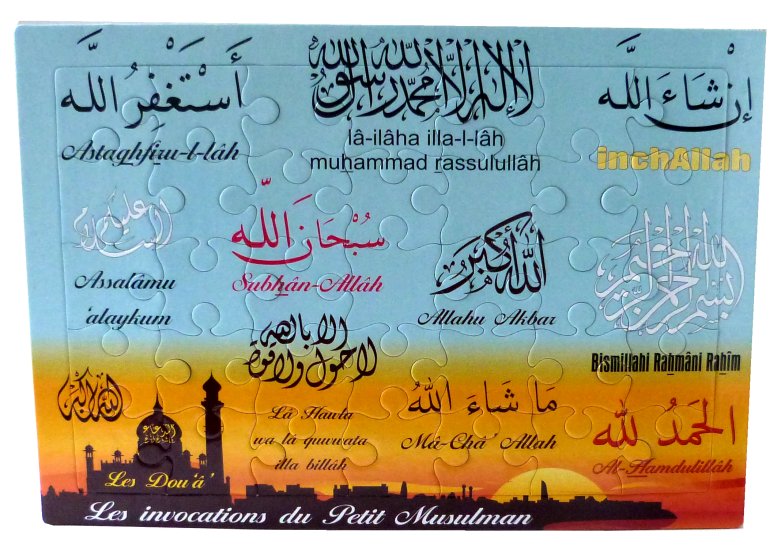 أَسْتَغْفِرُ اللَّه
Astaghfiru-l-lâh
لا إله إلا الله محمد رسول الله
lâ-ilâha illa-l-lâh
muhammad rassulullâh
إنْ شَاءَ اللَّه
inchAllah
السلام عليكم
Assalâmu
'alaykum
سُبْحَانَ اللَّه
Subhân-Allâh
الله أكبر
Allahu Akbar
بسم الله الرحمن الرحيم
Bismillahi Rahmâni Rahîm
الله أكبر
لا حول ولا قوة إلا بالله
Lâ Hawla
wa lâ quwwata
illa billâh
مَا شَاءَ اللَّهُ
Mâ-Châ' Allah
الحَمْدُ لله
Al-Hamdulillâh
Les Dou'â'
Les invocations du Petit Musulman